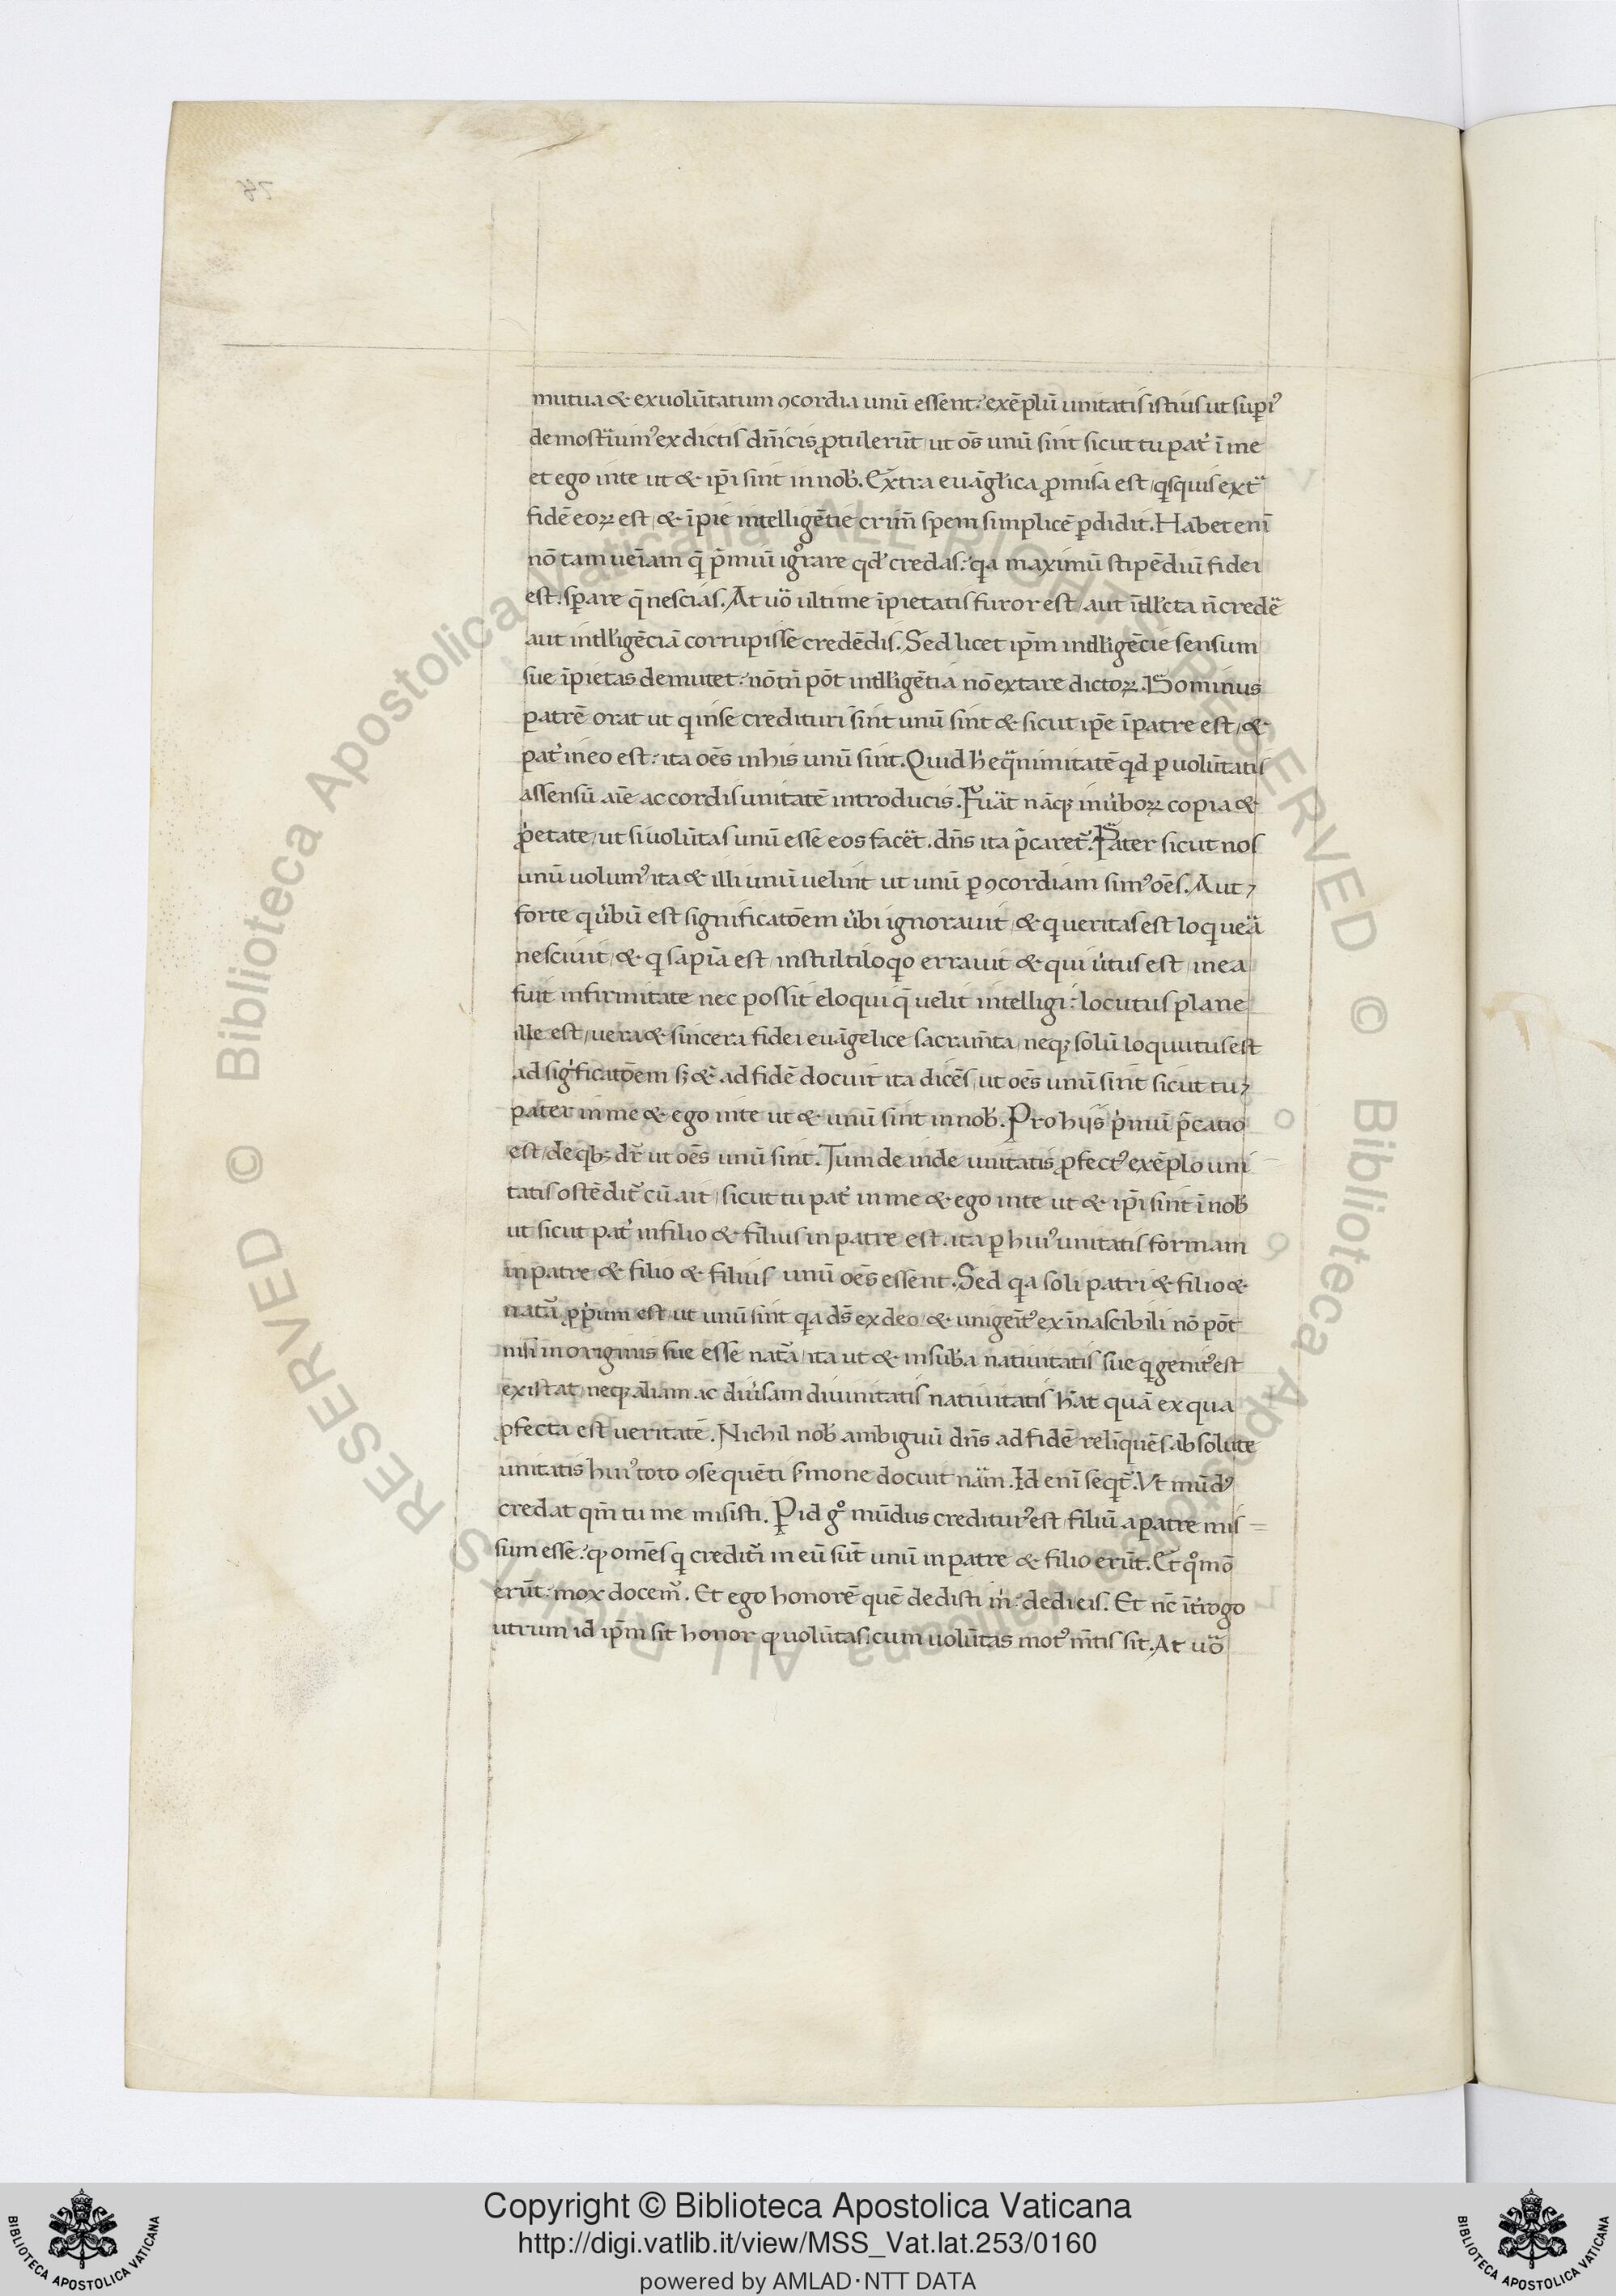 mutua & ex uolũtatum ꝯcordia unũ essent: exẽplũ unitatis istius ut supi᷒
demostᷓuim᷒ ex dictis dñicis ꝓtulerũt ut oẽs unũ sint sicut tu pat̉ ĩ me
et ego inte ut & ip̃i sint in nob̉. Extra euãgl̉ica ꝓmisa est q̃squis extᷓ
fidẽ eoꝝ est & ĩpie intelligẽtie crim̃ spem simplicẽ ꝑdidit. Habet enĩ
nõ tam uẽiam q̃ p̃miũ igᷓrare qd̉ credas: qa maximũ stipẽdiũ fidei
est sꝑare q̃ nescias. At uᷓo ultime ĩpietatis furor est aut ĩtll̉cta ñ credẽ
aut intll̉igẽciã corrupisse credẽdis. Sed licet ip̃m intll̉igẽcie sensum
sue ĩpietas demutet: nõ tñ põt intll̉igẽtia nõ extare dictoꝝ. Dominus
patrẽ orat ut q inse credituri sint unũ sint & sicut ip̃e ĩ patre est &
pat̉ in eo est: ita oẽs in his unũ sint. Quid h̉ eqᷓnimitatẽ qd ꝑ uolũtatis
assensũ aĩe ac cordis unitatẽ introducis. Fuãt nãqꝫ in u̾boꝝ copia &
ꝓ̉etate ut si uolũtas unũ esse eos facẽt. dñs ita p̃caret̃. Pater sicut nos
unũ uolum᷒ ita & illi unũ uelint ut unũ ꝑ ꝯcordiam sim᷒ oẽs. Aut
forte q u̾bũ est significatõem u̾bi ignorauit & q ueritas est loq ueᷓa
nesciuit & q sapĩa est in stultiloqo errauit & qui u̾tus est in ea
fuit infirmitate nec possit eloqui q̃ uelit intelligi: locutus plane
ille est uera & sincera fidei euãgelice sacram̃ta neqꝫ solũ loquutus est
ad sig̾ficatõem sꝫ & ad fidẽ docuit ita dicẽs ut oẽs unũ sint sicut tu
pater in me & ego inte ut & unũ sint in nob̉. Pro hijs p̾mũ p̃catio
est de qbꝫ dr̃ ut oẽs unũ sint. Tum de inde unitatis ꝓfect᷒ exẽplo uni
tatis ostẽdit̃ cũ ait sicut tu pat̉ in me & ego inte ut & ip̃i sint ĩ nob̉
ut sicut pat̉ in filio & filius in patre est. ita ꝑ hui᷒ unitatis formam
in patre & filio & filius unũ oẽs essent. Sed qa soli patri & filio &
natã ꝓp̾um est ut unũ sint qa dẽs ex deo & unigẽit᷒ ex ĩnascibili nõ põt
nisi in originis sue esse natã ita ut & in sub̾a natiuitatis sue q genit᷒ est
existat neqꝫ aliam ac diu̾sam diuinitatis natiuitatis h̉at quã ex qua
ꝑfecta est ueritatẽ. Nichil nob̉ ambiguũ dñs ad fidẽ relĩquẽs absolute
unitatis hui᷒ toto ꝯsequẽti s̉mone docuit nãm. Id enĩ seqt̃. Ut mũd᷒
credat qm̃ tu me misisti. P id gͦ mũdus creditur᷒ est filiũ a patre mis
sum esse: qꝫ omẽs q credit̃i in eũ sũt unũ in patre & filio erũt. Et qͦmõ
erũt: mox docem᷒. Et ego honorẽ quẽ dedisti m̉: dedi eis. Et nc̃ ĩt̉rogo
utrum id ip̃m sit honor qꝫ uolũtas: cum uolũtas mot᷒ mẽtis sit. At uᷓo
Copyright © Biblioteca Apostolica Vaticana
http://digi.vatlib.it/view/MSS_Vat.lat.253/0160
powered by AMLAD·NTT DATA